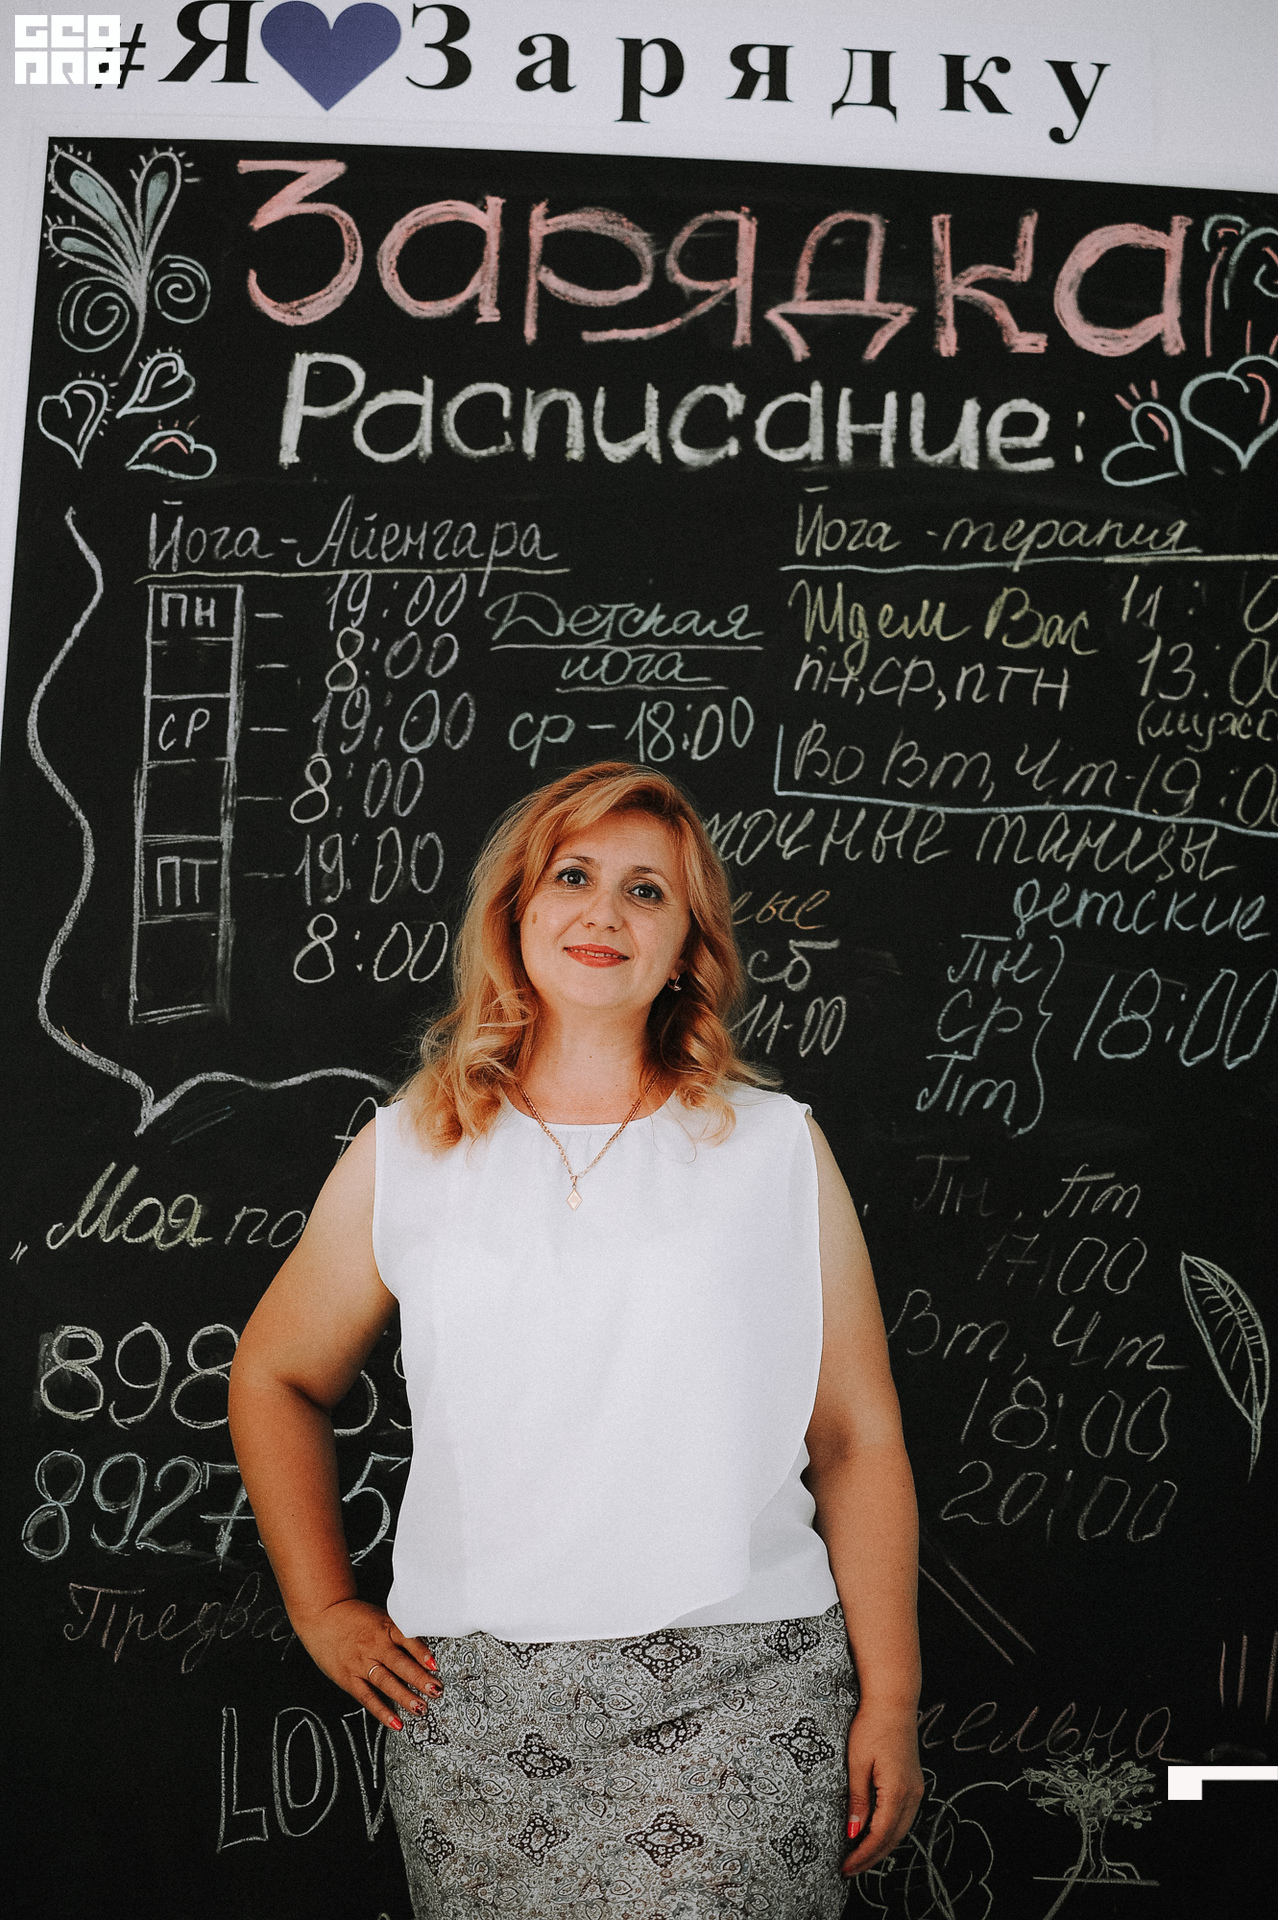 GEO
PRO
#Я Зарядку
Зарядка
Расписание:
Йога-Айенгара
ПН - 19:00
- 8:00
СР - 19:00
- 8:00
ПТ - 19:00
8:00
Детская
йога
ср-18:00
Йога-терапия
Ждем Вас 11:0
пн,ср,птн 13:00
(мужс
Во Вт, Чт-19:00
точные танцы
сб
11-00
детские
Пн
Ср 18:00
Пт
Пн, Пт
17:00
Вт, Чт
18:00
20:00
„Моя по
898
8927 5
Предва
тельна
LOV